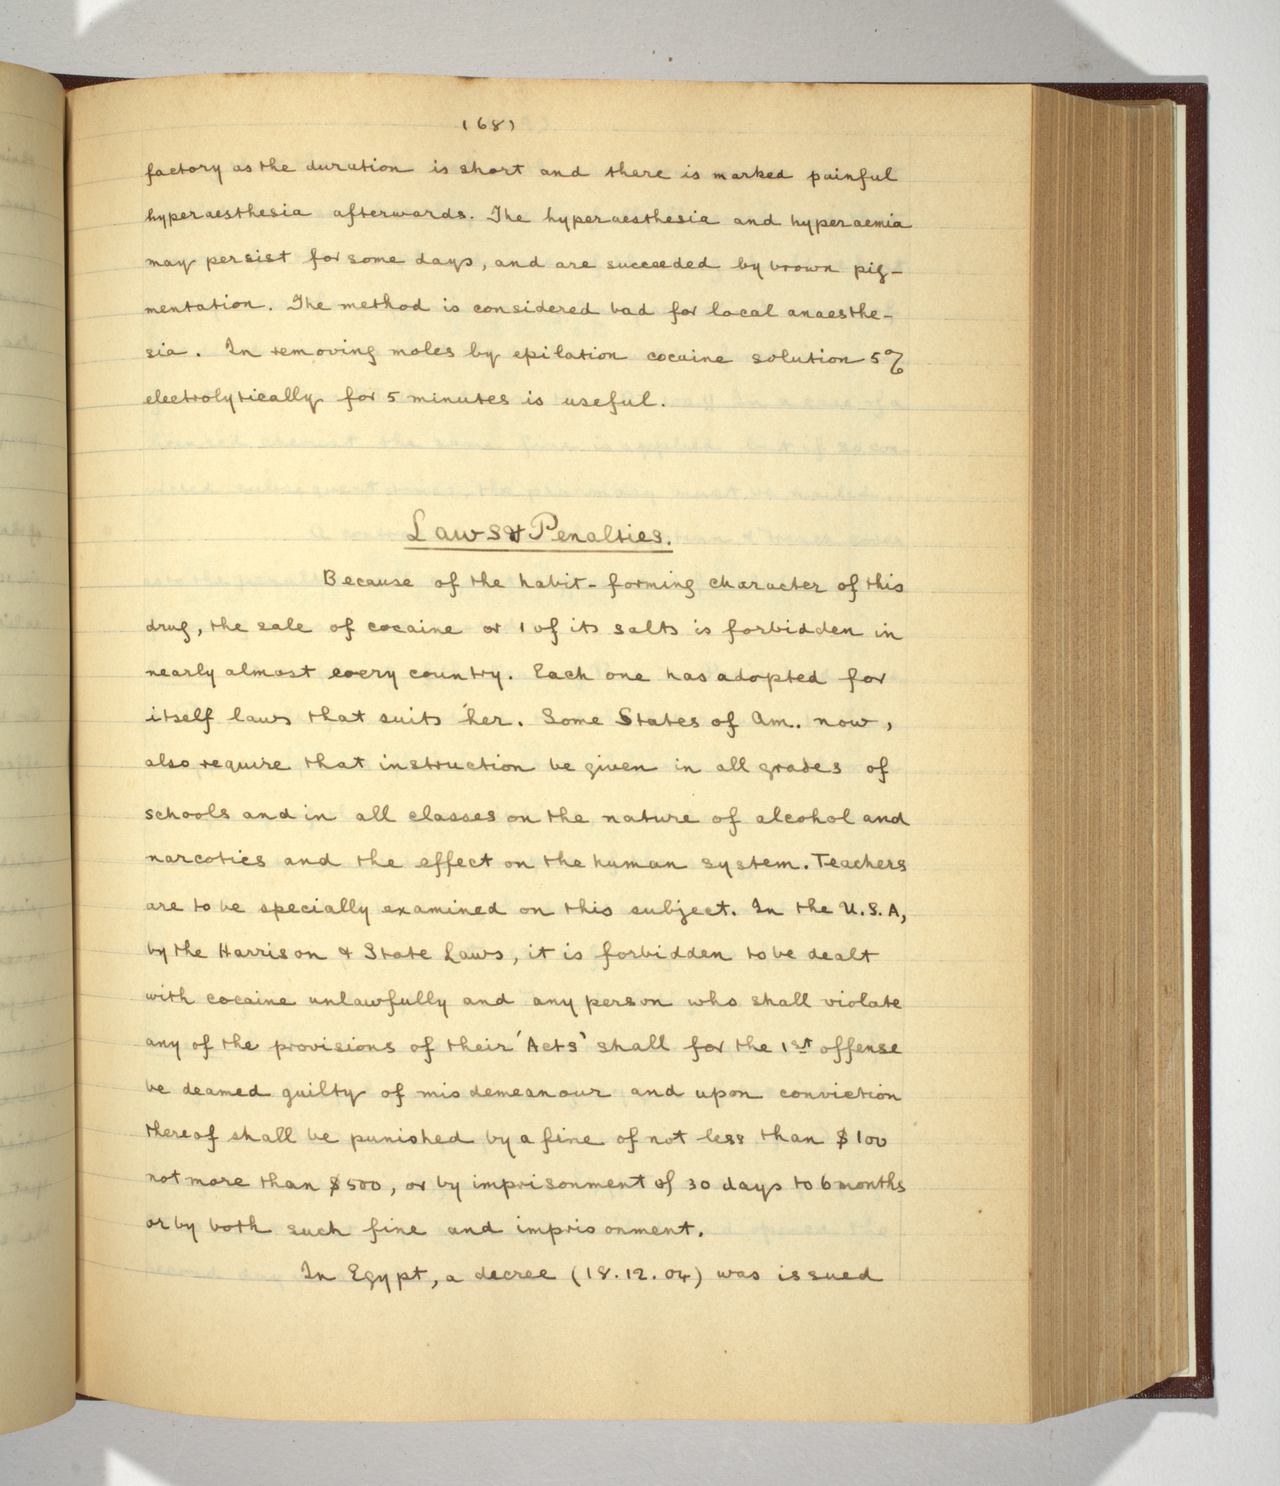 (68)
factory as the duration is short and there is marked painful
hyperaesthesia afterwards. The hyperaesthesia and hyperaemia
may persist for some days, and are succeeded by brown pig-
mentation. The method is considered bad for local anaesthe-
sia. In removing moles by epilation cocaine solution 5%
electrolytically for 5 minutes is useful.
Laws & Penalties.
Because of the habit-forming character of this
drug, the sale of cocaine or 1 of its salts is forbidden in
nearly almost every country. Each one has adopted for
itself laws that suits her. Some States of Am. now,
also require that instruction be given in all grades of
schools and in all classes on the nature of alcohol and
narcotics and the effect on the human system. Teachers
are to be specially examined on this subject. In the U.S.A,
by the Harrison & State Laws, it is forbidden to be dealt
with cocaine unlawfully and any person who shall violate
any of the provisions of their 'Acts' shall for the 1st offense
be deamed guilty of misdemeanour and upon conviction
thereof shall be punished by a fine of not less than $100
not more than $500, or by imprisonment of 30 days to 6 months
or by both such fine and imprisonment.
In Egypt, a decree (18.12.04) was issued